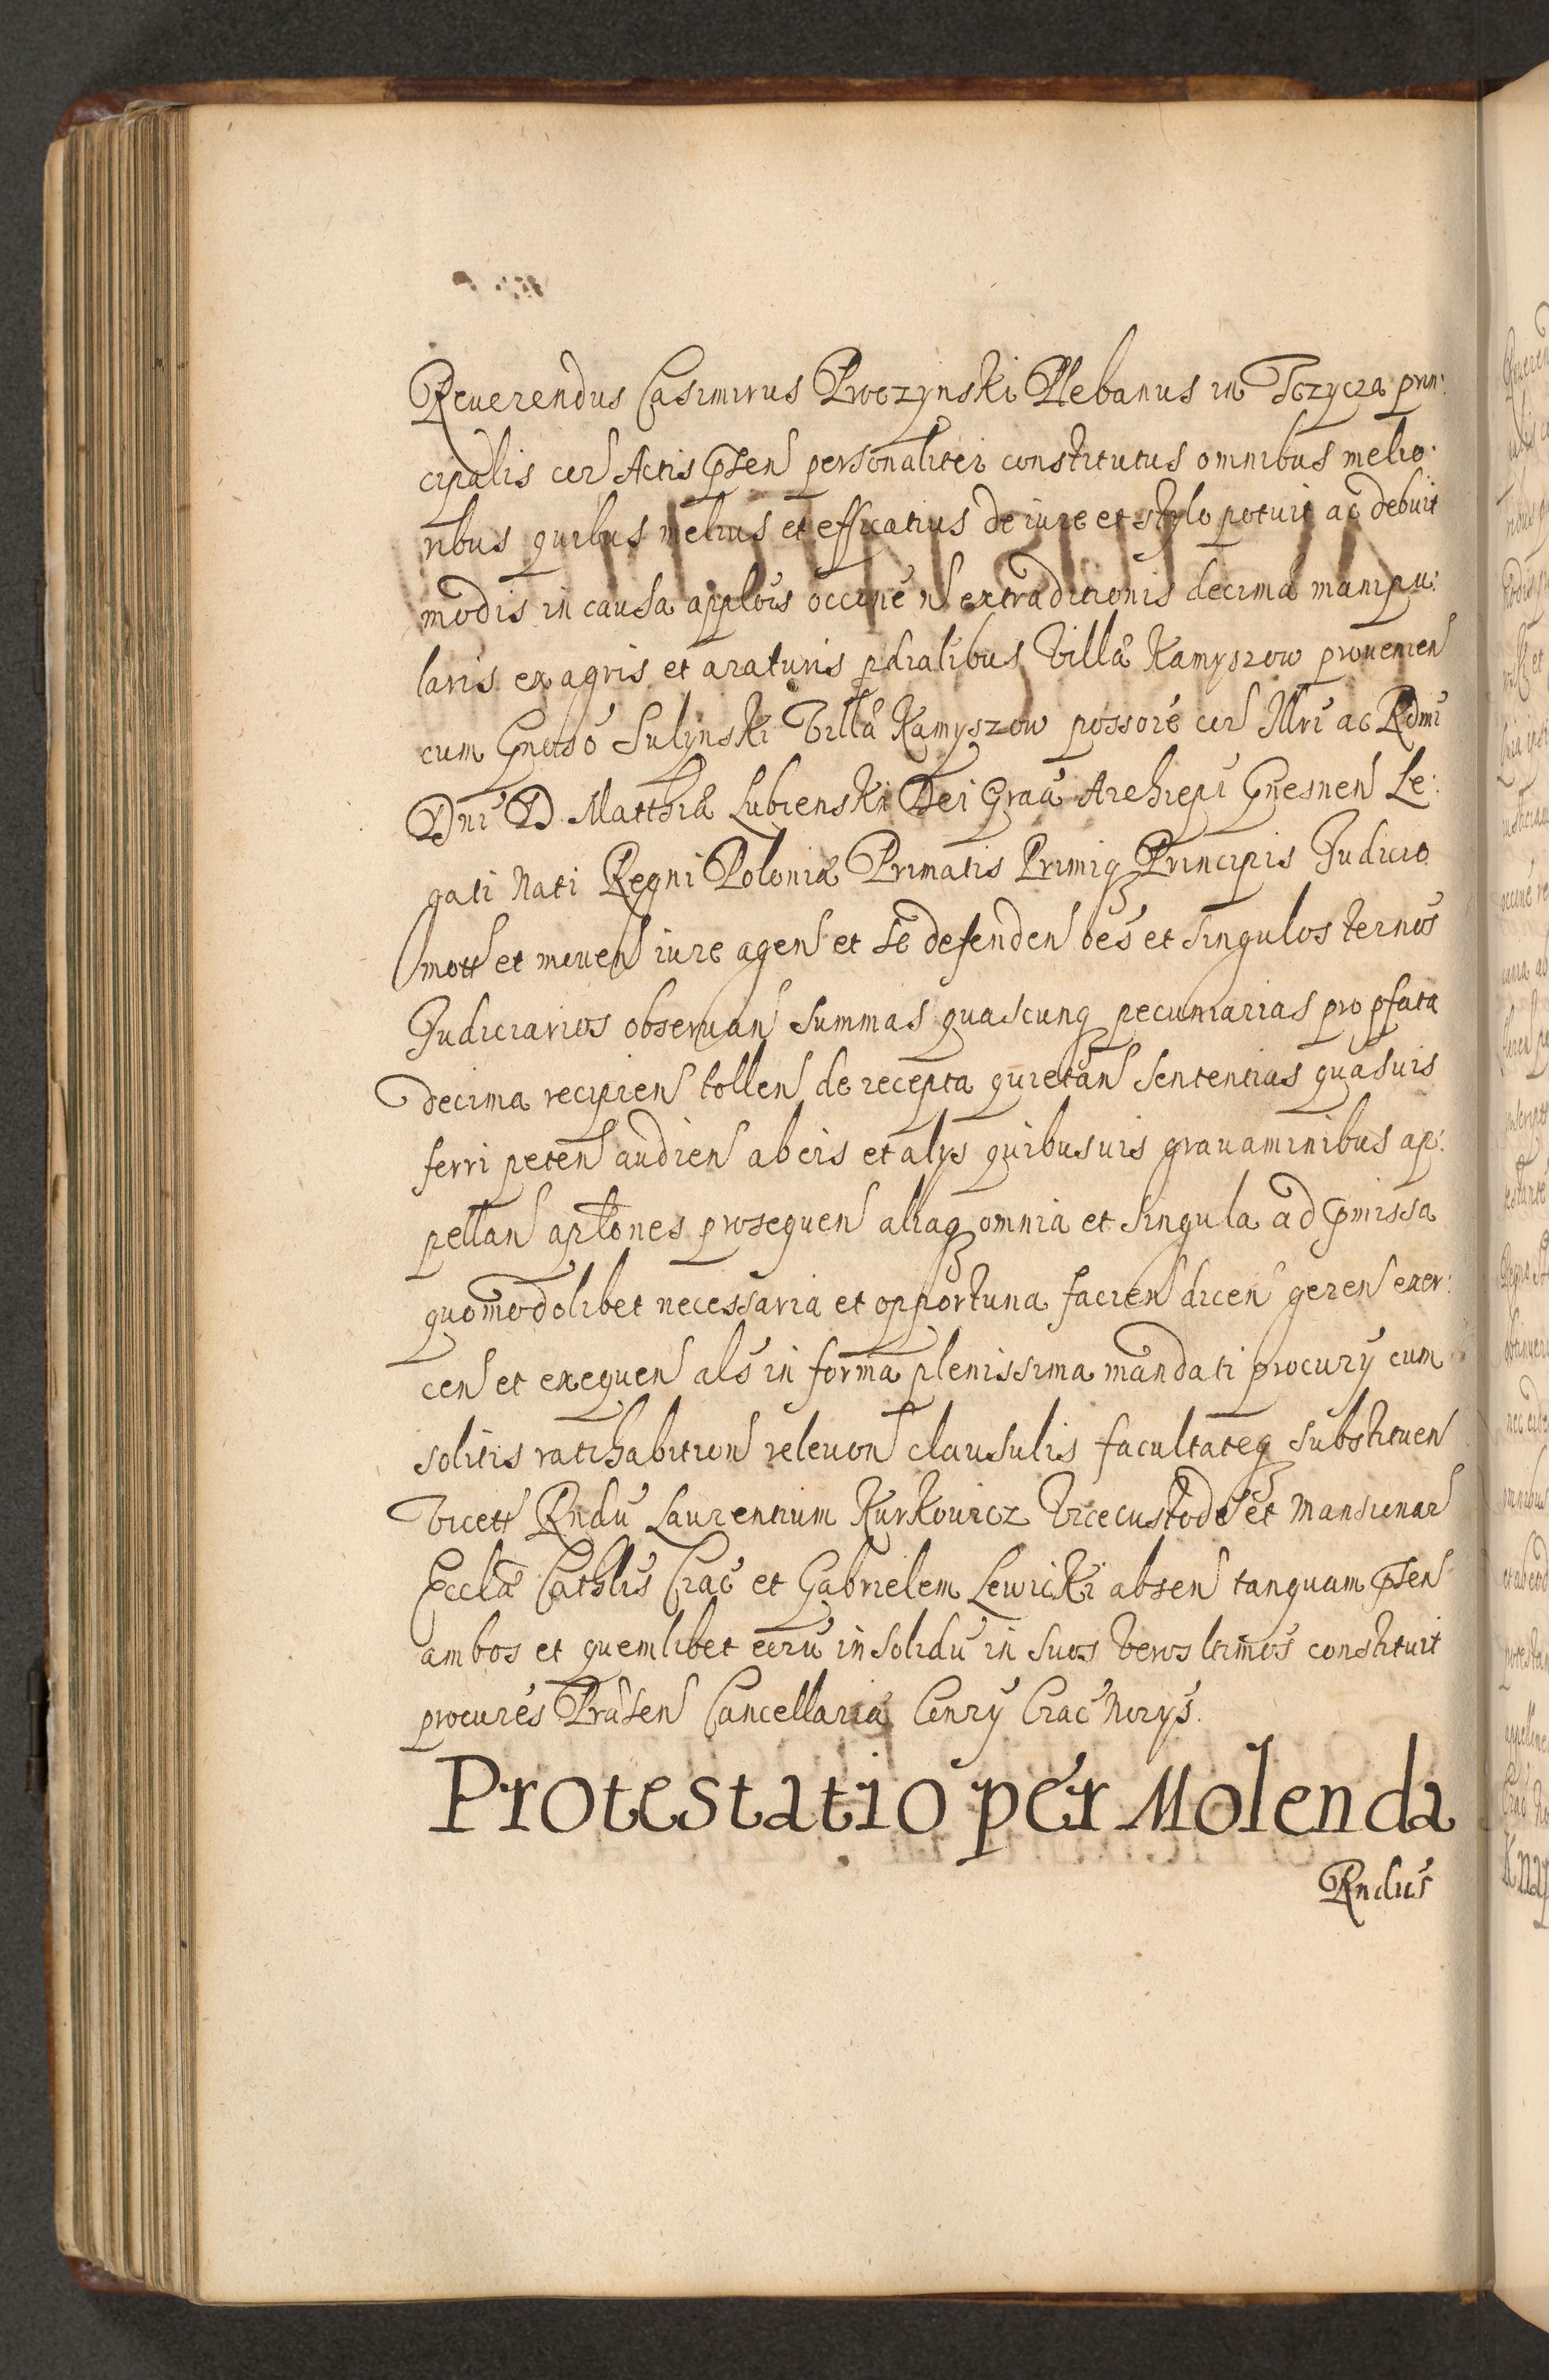 Reuerendus Casimirus Proczynski Plebanus in Tczycza prin:
cipalis cor Actis pnsen personaliter constitutus omnibus melio:
ribus quibus melius et efficatius de iure et stylo potuit ac debuit
modis in causa applois occone n extraditionis decima manipu:
laris ex agris et araturis pdialibus Villæ Kamyszow prouenien
cum Gnoso Sulynski Villæ Kamyszow possore cor Illri ac Rdmi
Dni D. Matthiæ Lubienski Dei Graa Archiepi Gnesnen Le:
gati Nati Regni Poloniæ Primatis Primiq Principis Judicio
mott et mouen iure agen et se defenden oes et singulos ternos
Judiciarios obseruan summas quascunq pecuniarias pro pfata
decima recipien tollen de recepta quietan sententias quasuis
ferri peten audien ab eis et alys quibusuis grauaminibus ap:
pellan aplones prosequen aliaq omnia et singula ad pmissa
quomodolibet necessaria et opportuna facien dicen geren exer:
cen et exequen als in forma plenissima mandati procury cum
solitis ratihabition releuon clausulis facultateq substituen
Vicett Rndu Laurentium Kurkowicz Vicecustode et Mansionar
Eccla Cathlis Crac et Gabrielem Lewicki absen tanquam pnsen
ambos et quemlibet eoru in solidu in suos veros ltimos constituit
procures Præsen Cancellaria Conry Crac Norys.
Protestatio per Molenda
Rndus